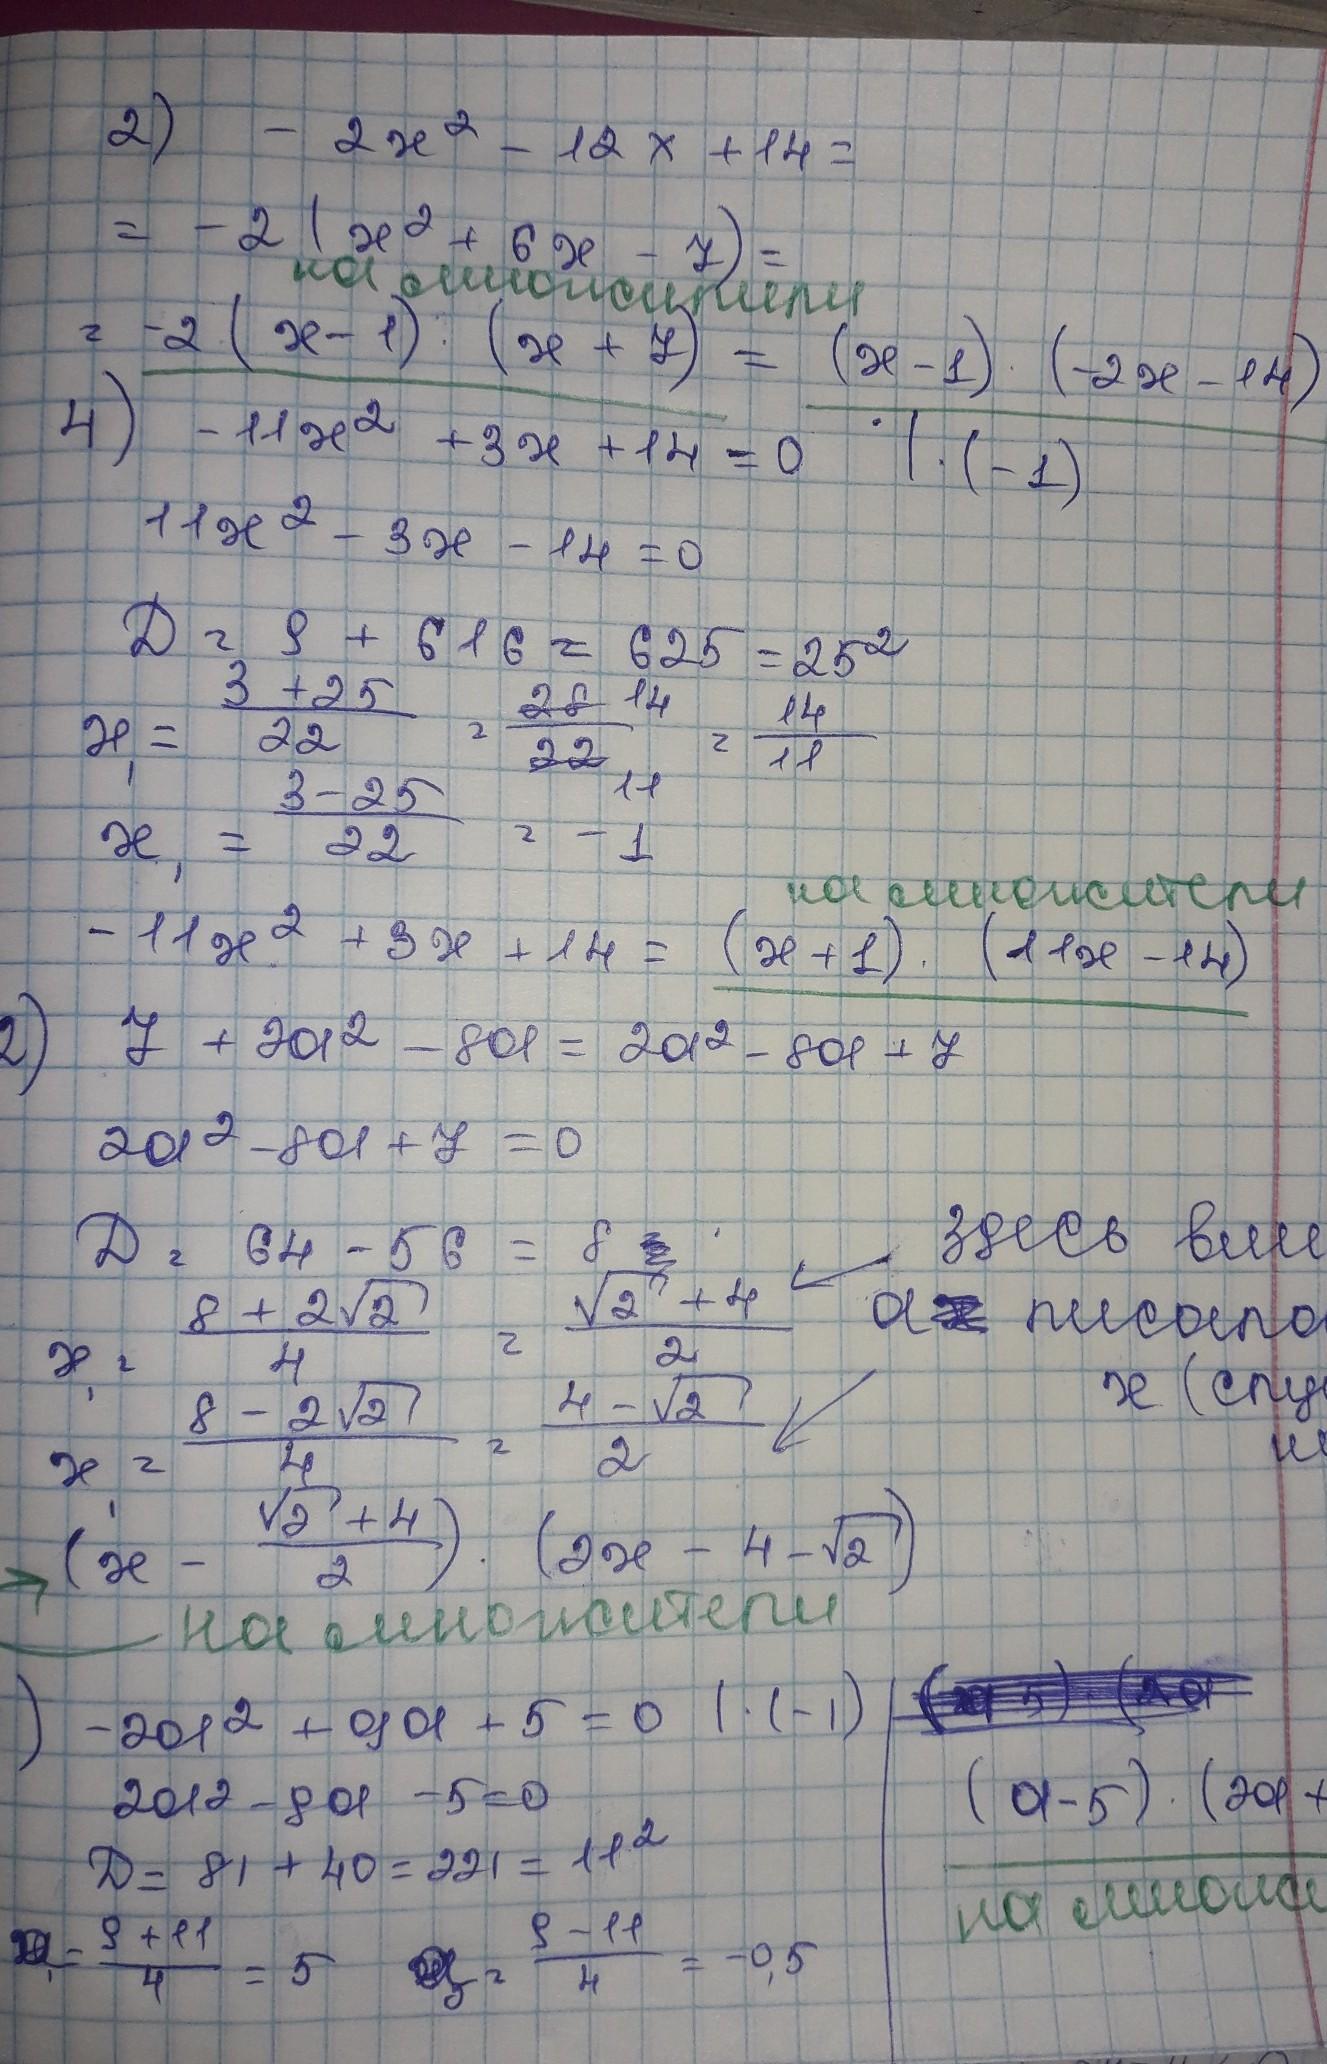 2) - 2x² - 12x + 14 =
= -2 (x² + 6x - 7) =
на множители
= -2 (x - 1) · (x + 7) = (x - 1) · (-2x - 14)
4) -11x² + 3x + 14 = 0 | · (-1)
11x² - 3x - 14 = 0
D = 9 + 616 = 625 = 25²
x₁ = (3 + 25)/22 = 28/22 14/11 = 14/11
x₁ = (3 - 25)/22 = -1
на множители
-11x² + 3x + 14 = (x + 1) · (11x - 14)
2) 7 + 2a² - 8a = 2a² - 8a + 7
2a² - 8a + 7 = 0
D = 64 - 56 = 8
здесь
x₁ = (8 + 2√2)/4 = (√2 + 4)/2
a
x
x₁ = (8 - 2√2)/4 = (4 - √2)/2
(x - (√2 + 4)/2) · (2x - 4 - √2)
на множители
) -2a² + 9a + 5 = 0 | · (-1)
2a² - 9a - 5 = 0
(a - 5) · (2a +
D = 81 + 40 = 221 = 11²
на
= (9 + 11)/4 = 5
= (9 - 11)/4 = -0,5